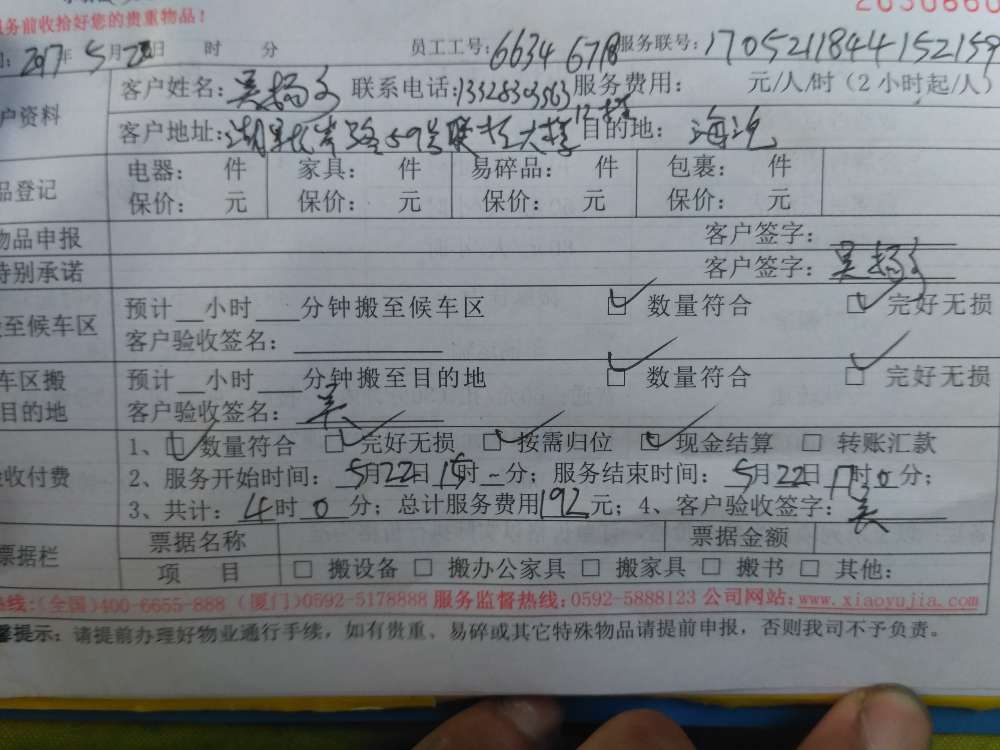 服务前收拾好您的贵重物品！
2017年5月22日 时 分 员工工号：6634 6718 服务联号：1705211844152159
户资料 客户姓名：吴 联系电话：13328303563 服务费用： 元/人/时（2小时起/人）
客户地址：湖 路59号联 大 12楼 目的地：海沧
品登记 电器： 件 家具： 件 易碎品： 件 包裹： 件
保价： 元 保价： 元 保价： 元 保价： 元
物品申报 客户签字：
特别承诺 客户签字：吴
至候车区 预计 小时 分钟搬至候车区 数量符合 完好无损
客户验收签名：
车区搬目的地 预计 小时 分钟搬至目的地 数量符合 完好无损
客户验收签名：吴
收付费 1、数量符合 完好无损 按需归位 现金结算 转账汇款
2、服务开始时间：5月22日15时-分；服务结束时间：5月22日17时0分；
3、共计：4时0分；总计服务费用192元；4、客户验收签字：吴
票据栏 票据名称 票据金额
项 目 搬设备 搬办公家具 搬家具 搬书 其他：
热线：(全国)400-6655-888 (厦门)0592-5178888 服务监督热线：0592-5888123 公司网站：www.xiaoyujia.com
馨提示：请提前办理好物业通行手续，如有贵重、易碎或其它特殊物品请提前申报，否则我司不予负责。